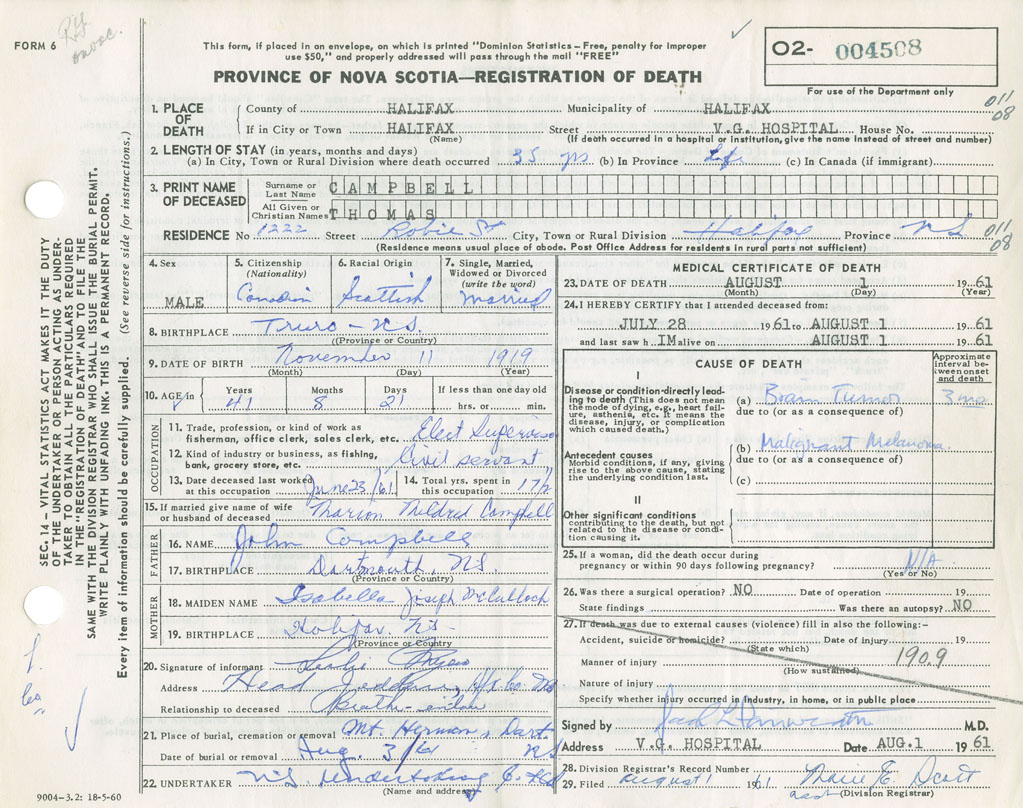 FORM 6
This form, if placed in an envelope, on which is printed "Dominion Statistics – Free, penalty for improper
use $50," and properly addressed will pass through the mail "FREE"
PROVINCE OF NOVA SCOTIA—REGISTRATION OF DEATH
02- 004508
For use of the Department only
011
08
1. PLACE OF DEATH
County of HALIFAX Municipality of HALIFAX
If in City or Town HALIFAX Street V.G. HOSPITAL House No.
(Name) (If death occurred in a hospital or institution, give the name instead of street and number)
2. LENGTH OF STAY (in years, months and days)
(a) In City, Town or Rural Division where death occurred 35 yrs (b) In Province Life (c) In Canada (if immigrant)
3. PRINT NAME OF DECEASED
Surname or Last Name CAMPBELL
All Given or Christian Names THOMAS
RESIDENCE No 1222 Street Robie St City, Town or Rural Division Halifax Province NS
011
08
(Residence means usual place of abode. Post Office Address for residents in rural parts not sufficient)
4. Sex MALE
5. Citizenship (Nationality) Canadian
6. Racial Origin Scottish
7. Single, Married, Widowed or Divorced (write the word) Married
8. BIRTHPLACE Truro – N.S.
(Province or Country)
9. DATE OF BIRTH November 11 1919
(Month) (Day) (Year)
10. AGE in Years 41 Months 8 Days 21 If less than one day old hrs. or min.
OCCUPATION
11. Trade, profession, or kind of work as fisherman, office clerk, sales clerk, etc. Elect Supervisor
12. Kind of industry or business, as fishing, bank, grocery store, etc. Civil servant
13. Date deceased last worked at this occupation June 23/61
14. Total yrs. spent in this occupation 17 1/2
15. If married give name of wife or husband of deceased Marion Mildred Campbell
FATHER
16. NAME John Campbell
17. BIRTHPLACE Dartmouth, N.S.
(Province or Country)
MOTHER
18. MAIDEN NAME Isabella Joseph McCulloch
19. BIRTHPLACE Halifax N.S.
(Province or Country
20. Signature of informant Leslie
Address Head Jeddore, Hfx Co. NS
Relationship to deceased Brother-in-law
21. Place of burial, cremation or removal Mt. Herman, Dart
Date of burial or removal Aug. 3/61 NS
22. UNDERTAKER N.S. Undertaking Co Ltd
(Name and address)
9004-3.2: 18-5-60
MEDICAL CERTIFICATE OF DEATH
23. DATE OF DEATH AUGUST 1 1961
(Month) (Day) (Year)
24. I HEREBY CERTIFY that I attended deceased from:
JULY 28 1961 to AUGUST 1 1961
and last saw h IM alive on AUGUST 1 1961
CAUSE OF DEATH
Approximate interval between onset and death
I
Disease or condition directly leading to death (This does not mean the mode of dying, e.g., heart failure, asthenia, etc. It means the disease, injury, or complication which caused death.)
(a) Brain Tumor 3 mo
due to (or as a consequence of)
Antecedent causes
Morbid conditions, if any, giving rise to the above cause, stating the underlying condition last.
(b) Malignant Melanoma
due to (or as a consequence of)
(c)
II
Other significant conditions
contributing to the death, but not related to the disease or condition causing it.
25. If a woman, did the death occur during
pregnancy or within 90 days following pregnancy? N/A
(Yes or No)
26. Was there a surgical operation? NO Date of operation 19
State findings Was there an autopsy? NO
27. If death was due to external causes (violence) fill in also the following:–
Accident, suicide or homicide? Date of injury 19
(State which)
Manner of injury 190.9
(How sustained)
Nature of injury
Specify whether injury occurred in industry, in home, or in public place
Signed by M.D.
Address V.G. HOSPITAL Date AUG.1 1961
28. Division Registrar's Record Number
29. Filed August 1 1961 Marie E. Scott
asst (Division Registrar)
SEC. 14 – VITAL STATISTICS ACT MAKES IT THE DUTY
OF THE UNDERTAKER OR PERSON ACTING AS UNDER-
TAKER TO OBTAIN ALL THE PARTICULARS REQUIRED
IN THE "REGISTRATION OF DEATH" AND TO FILE THE
SAME WITH THE DIVISION REGISTRAR WHO SHALL ISSUE THE BURIAL PERMIT.
WRITE PLAINLY WITH UNFADING INK. THIS IS A PERMANENT RECORD.
Every item of information should be carefully supplied. (See reverse side for instructions.)